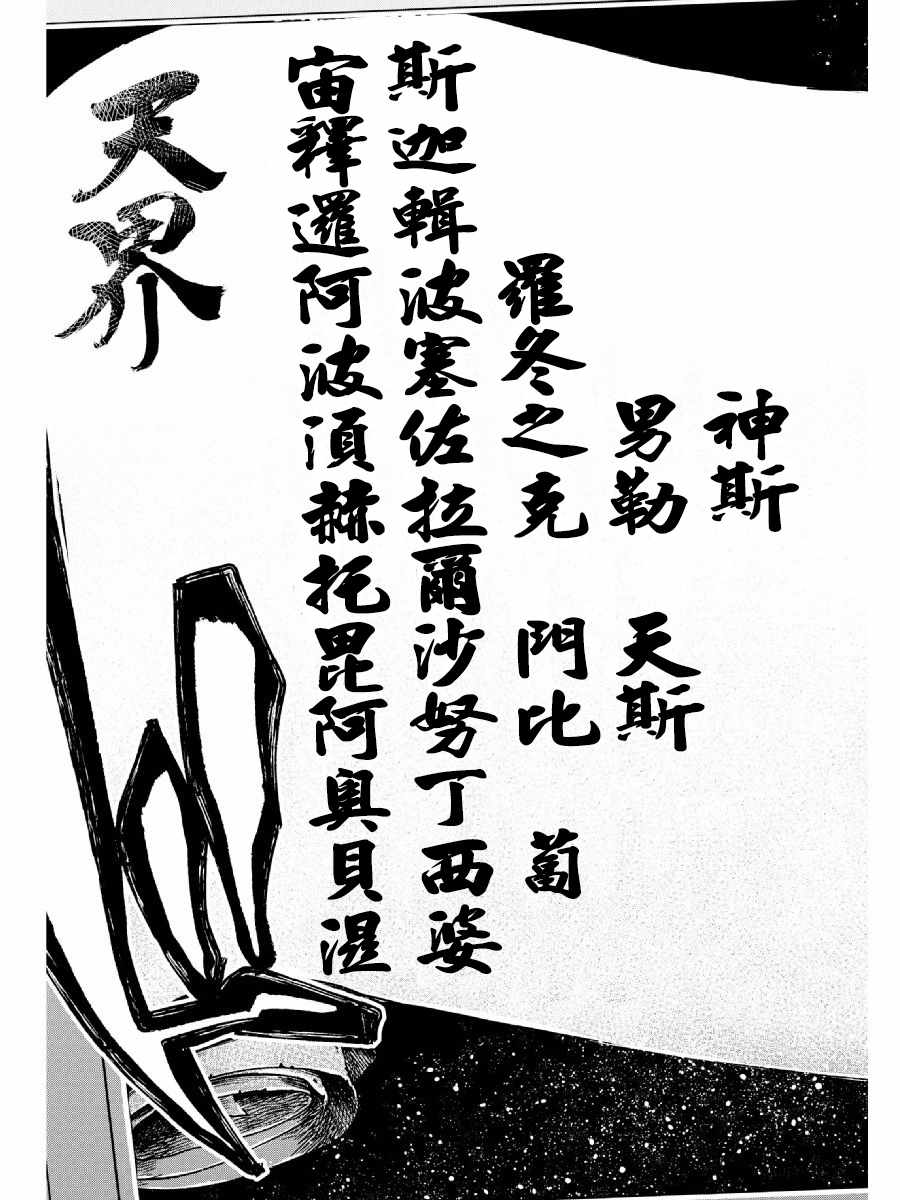 天界
宙斯
釋迦
邏輯
阿波羅
波塞冬
須佐之男神
赫拉克勒斯
托爾
毘沙門天
阿努比斯
奧丁
貝西蔔
湿婆